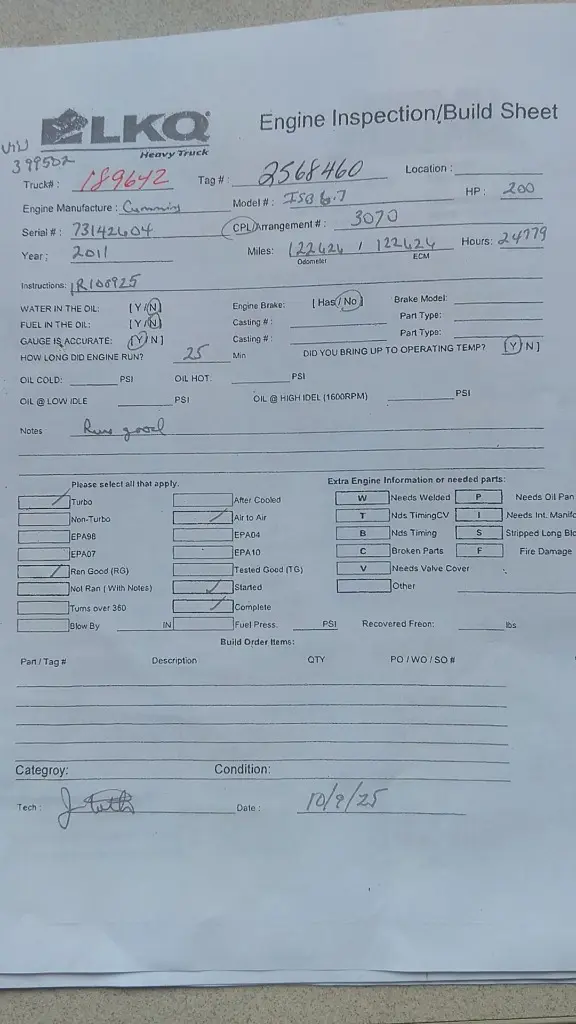 VIN
399502
LKQ
Heavy Truck
Engine Inspection/Build Sheet
Truck# : 189642 Tag # : 2568460 Location :
Engine Manufacture : Cummins Model# : ISB 6.7 HP : 200
Serial # : 73142604 CPL/Arrangement # : 3070
Year : 2011 Miles: 122424 / 122424 Hours: 24779
Odometer ECM
Instructions: IR100925
WATER IN THE OIL: [ Y / N ] Engine Brake: [ Has / No ] Brake Model:
FUEL IN THE OIL: [ Y / N ] Casting # : Part Type:
GAUGE IS ACCURATE: [ Y / N ] Casting # : Part Type:
HOW LONG DID ENGINE RUN? 25 Min DID YOU BRING UP TO OPERATING TEMP? [ Y N ]
OIL COLD: PSI OIL HOT: PSI
OIL @ LOW IDLE PSI OIL @ HIGH IDEL (1600RPM) PSI
Notes Runs good
Please select all that apply. Extra Engine Information or needed parts:
Turbo After Cooled W Needs Welded P Needs Oil Pan
Non-Turbo Air to Air T Nds TimingCV I Needs Int. Manifo
EPA98 EPA04 B Nds Timing S Stripped Long Blo
EPA07 EPA10 C Broken Parts F Fire Damage
Ran Good (RG) Tested Good (TG) V Needs Valve Cover
Not Ran ( With Notes) Started Other
Turns over 360 Complete
Blow By IN Fuel Press. PSI Recovered Freon: lbs
Build Order Items:
Part / Tag # Description QTY PO / WO / SO #
Categroy: Condition:
Tech : Date : 10/9/25